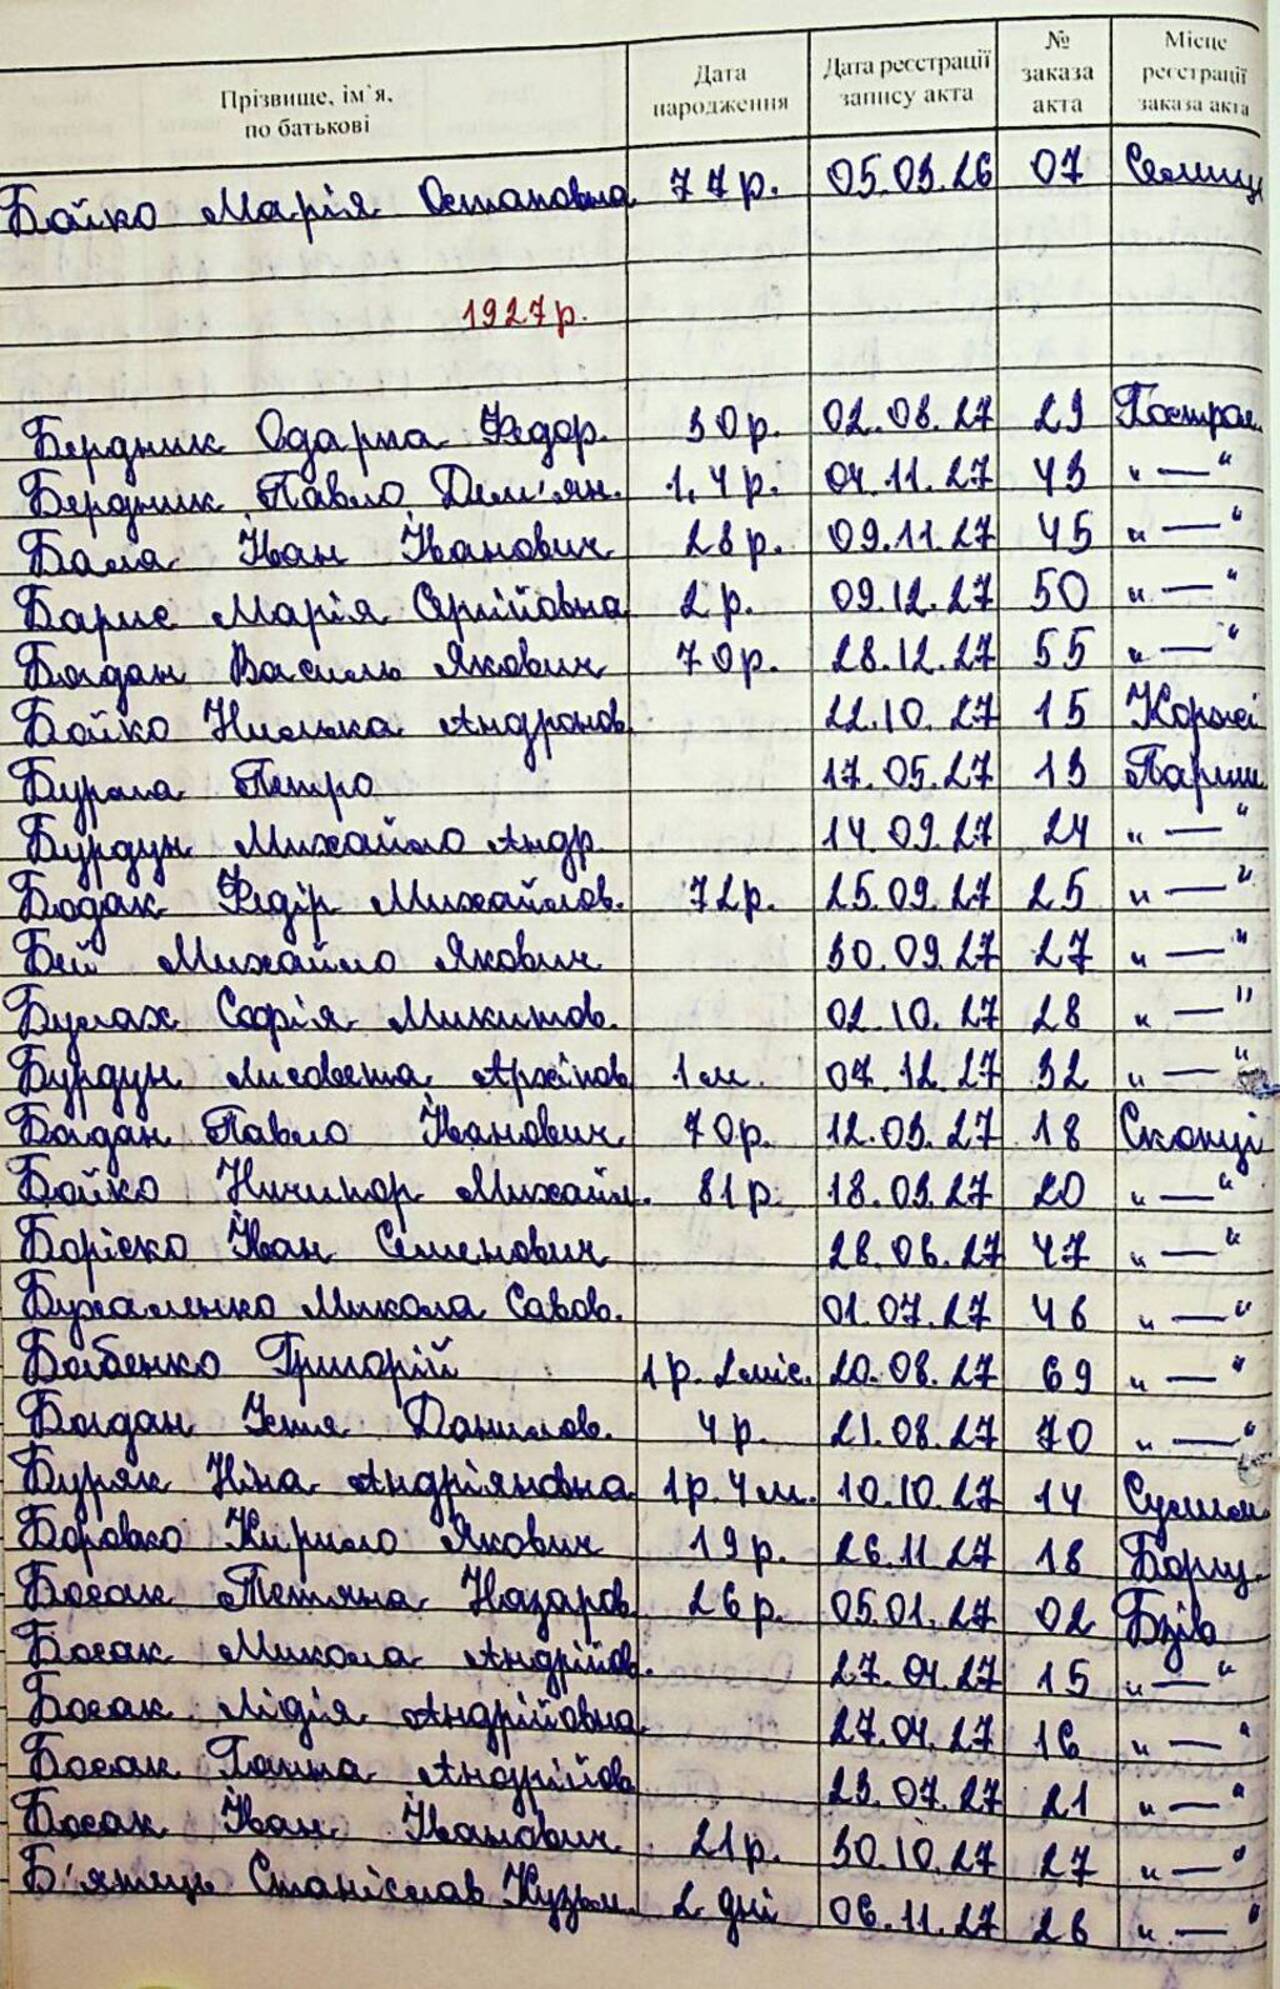 Прізвище, ім'я, по батькові Дата народження Дата реєстрації запису акта № заказа акта Місце реєстрації заказа акта
Бойко Марія Остаповна 77р. 05.03.26 07 Селищ
1927р.
Бердник Одарка Федор. 30р. 02.08.27 29 Построл.
Бердник Павло Дем'ян. 1,4р. 04.11.27 43 "—"
Баля Іван Іванович 28р. 09.11.27 45 "—"
Барис Марія Сергіївна 2р. 09.12.27 50 "—"
Богдан Василь Якович 70р. 28.12.27 55 "—"
Бойко Килька Андронов. 22.10.27 15 Коржі
Бурла Петро 17.05.27 13 Париш
Бурдун Михайло Андр. 14.09.27 24 "—"
Бодак Федір Михайлов. 72р. 25.09.27 25 "—"
Бей Михайло Якович 30.09.27 27 "—"
Булах Софія Микитов. 02.10.27 28 "—"
Бурдун Лисовета Архіпов. 1м. 07.12.27 32 "—"
Богдан Павло Іванович 70р. 12.03.27 18 Скопці
Бойко Ничипор Михайл. 81р. 18.03.27 20 "—"
Боріско Іван Семенович 28.06.27 47 "—"
Бухаленко Микола Савов. 01.07.27 46 "—"
Бабенко Григорій 1р. 2міс. 20.08.27 69 "—"
Богдан Устя Данилов. 4р. 21.08.27 70 "—"
Буряк Ніна Андріяновна 1р. 4м. 10.10.27 14 Сулим.
Боровко Кирило Якович 19р. 26.11.27 18 Борищ.
Босак Тетяна Назаров. 26р. 05.01.27 02 Бзів
Босак Микола Андрійов. 27.04.27 15 "—"
Босак Лідія Андрійовна 27.04.27 16 "—"
Босак Ганна Андрійов. 23.07.27 21 "—"
Босак Іван Іванович 21р. 30.10.27 27 "—"
Б'ятець Станіслав Кузьм. 2 дні 06.11.27 26 "—"